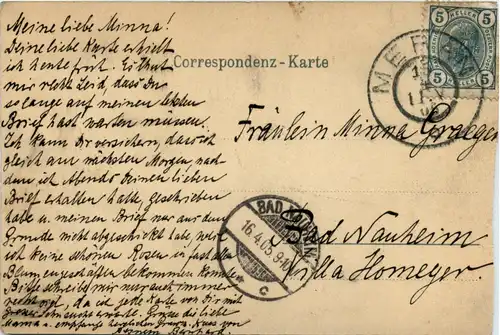 Meine liebe Minna!
Deine liebe Karte erhielt
ich heute früh. Es thut
mir recht Leid, dass Du
so lange auf meinen letzten
Brief hast warten müssen.
Ich kann Dir versichern, dass ich
gleich am nächsten Morgen, nach
dem ich Abends Deinen lieben
Brief erhalten habe, geschrieben
habe u. meinen Brief nur aus dem
Grunde nicht abgeschickt habe, weil
ich keine schönen Rosen in
Blumengeschäften bekommen konnte.
Bitte schreib mir nur auch immer
recht oft, da ich jede Karte von Dir mit
Grüsse die liebe
Mama u. empfang Gruss von
Deinem Bernhard.
Correspondenz-Karte
5 HELLER 5
5 5
MERAN
Fräulein Minna Graeger
BAD NAUHEIM
16.4.05.
* c
Bad Nauheim
Villa Homeyer.